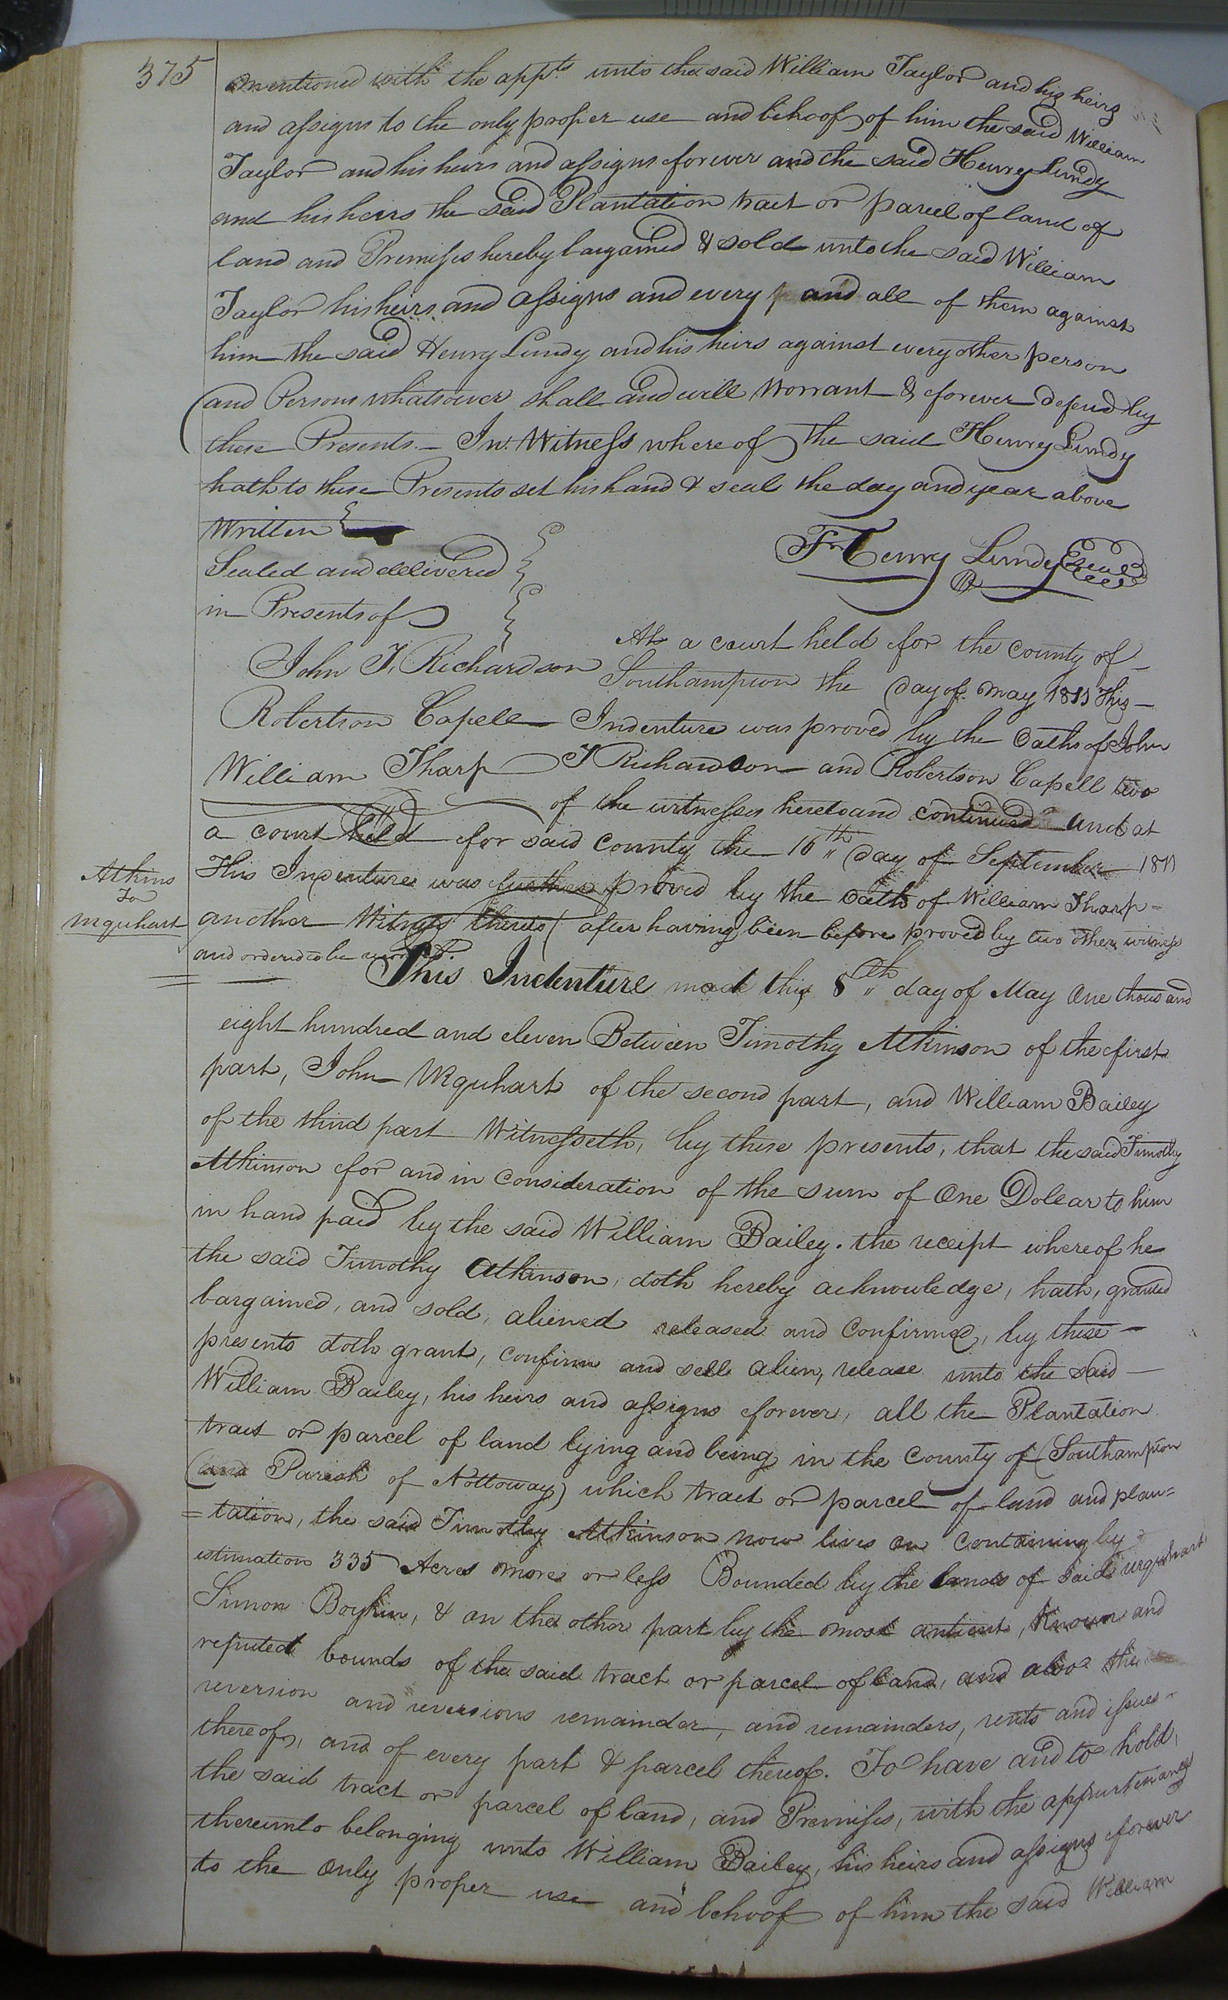 375
mentioned with the appts unto the said William Taylor and his heirs
and assigns to the only proper use and behoof of him the said William
Taylor and his heirs and assigns forever and the said Henry Lundy
and his heirs the said Plantation tract or parcel of land of
land and Premises hereby bargained & sold unto the said William
Taylor his heirs and assigns and every and all of them against
him the said Henry Lundy and his heirs against every other person
and Persons whatsoever shall and will Worrant & forever defend by
these Presents – In Witness where of the said Henry Lundy
hath to these Presents set his hand & seal the day and year above
Written
Sealed and delivered
in Presents of
Henry Lundy Seal
John T. Richardson
Robertson Capell
William Tharp
At a court held for the county of
Southampton the day of may 1811 This
Indenture was proved by the Oaths of John
T Richardson and Robertson Capell two
of the witnesses hereto and continued And at
a court held for said county the 16th day of September 1811
This Indenture was further proved by the Oath of William Tharp
another Witness thereto after having been before proved by two other witness
and ordered to be
Atkins
To
Urquhart
This Indenture made this 8th day of May One thousand
eight hundred and eleven Between Timothy Atkinson of the first
part, John Urquhart of the second part, and William Bailey
of the third part Witnesseth, by these presents, that the said Timothy
Atkinson for and in consideration of the sum of One Dollar to him
in hand paid by the said William Bailey. the receipt whereof he
the said Timothy Atkinson, doth hereby acknowledge, hath, granted
bargained, and sold, aliened released and confirmed, by these
presents doth grant, confirm and sell alien, release unto the said
William Bailey, his heirs and assigns forever, all the Plantation
tract or parcel of land lying and being in the County of (Southampton
(and Parish of Nottoway) which tract or parcel of land and plan=
=tation, the said Timothy Atkinson now lives on containing by
estimation 335 Acres more or less Bounded by the lands of said Urquhart
Simon Boykin, & on the other part by the most antient, Known and
reputed bounds of the said tract or parcel of land, and also the
reversion and reversions remainder, and remainders, rents and issues
thereof, and of every part & parcel thereof. To have and to hold,
the said tract or parcel of land, and Premises, with the appurtenances
thereunto belonging unto William Bailey, his heirs and assigns forever
to the only proper use and behoof of him the said William